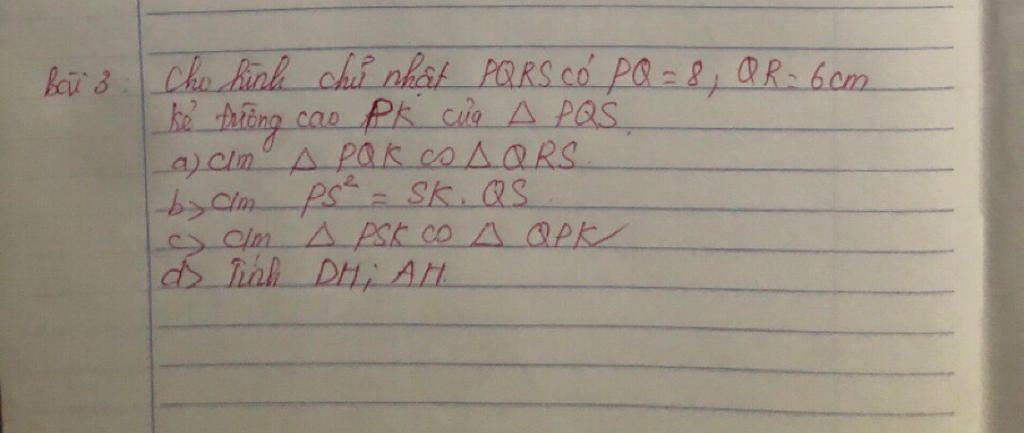 Bài 3: Cho hình chữ nhật PQRS có PQ = 8, QR = 6cm
kẻ đường cao PK của Δ PQS.
a) c/m Δ PQK ∽ Δ QRS.
b) c/m PS² = SK. QS.
c) c/m Δ PSK ∽ Δ QPK
d) Tính DH; AH.